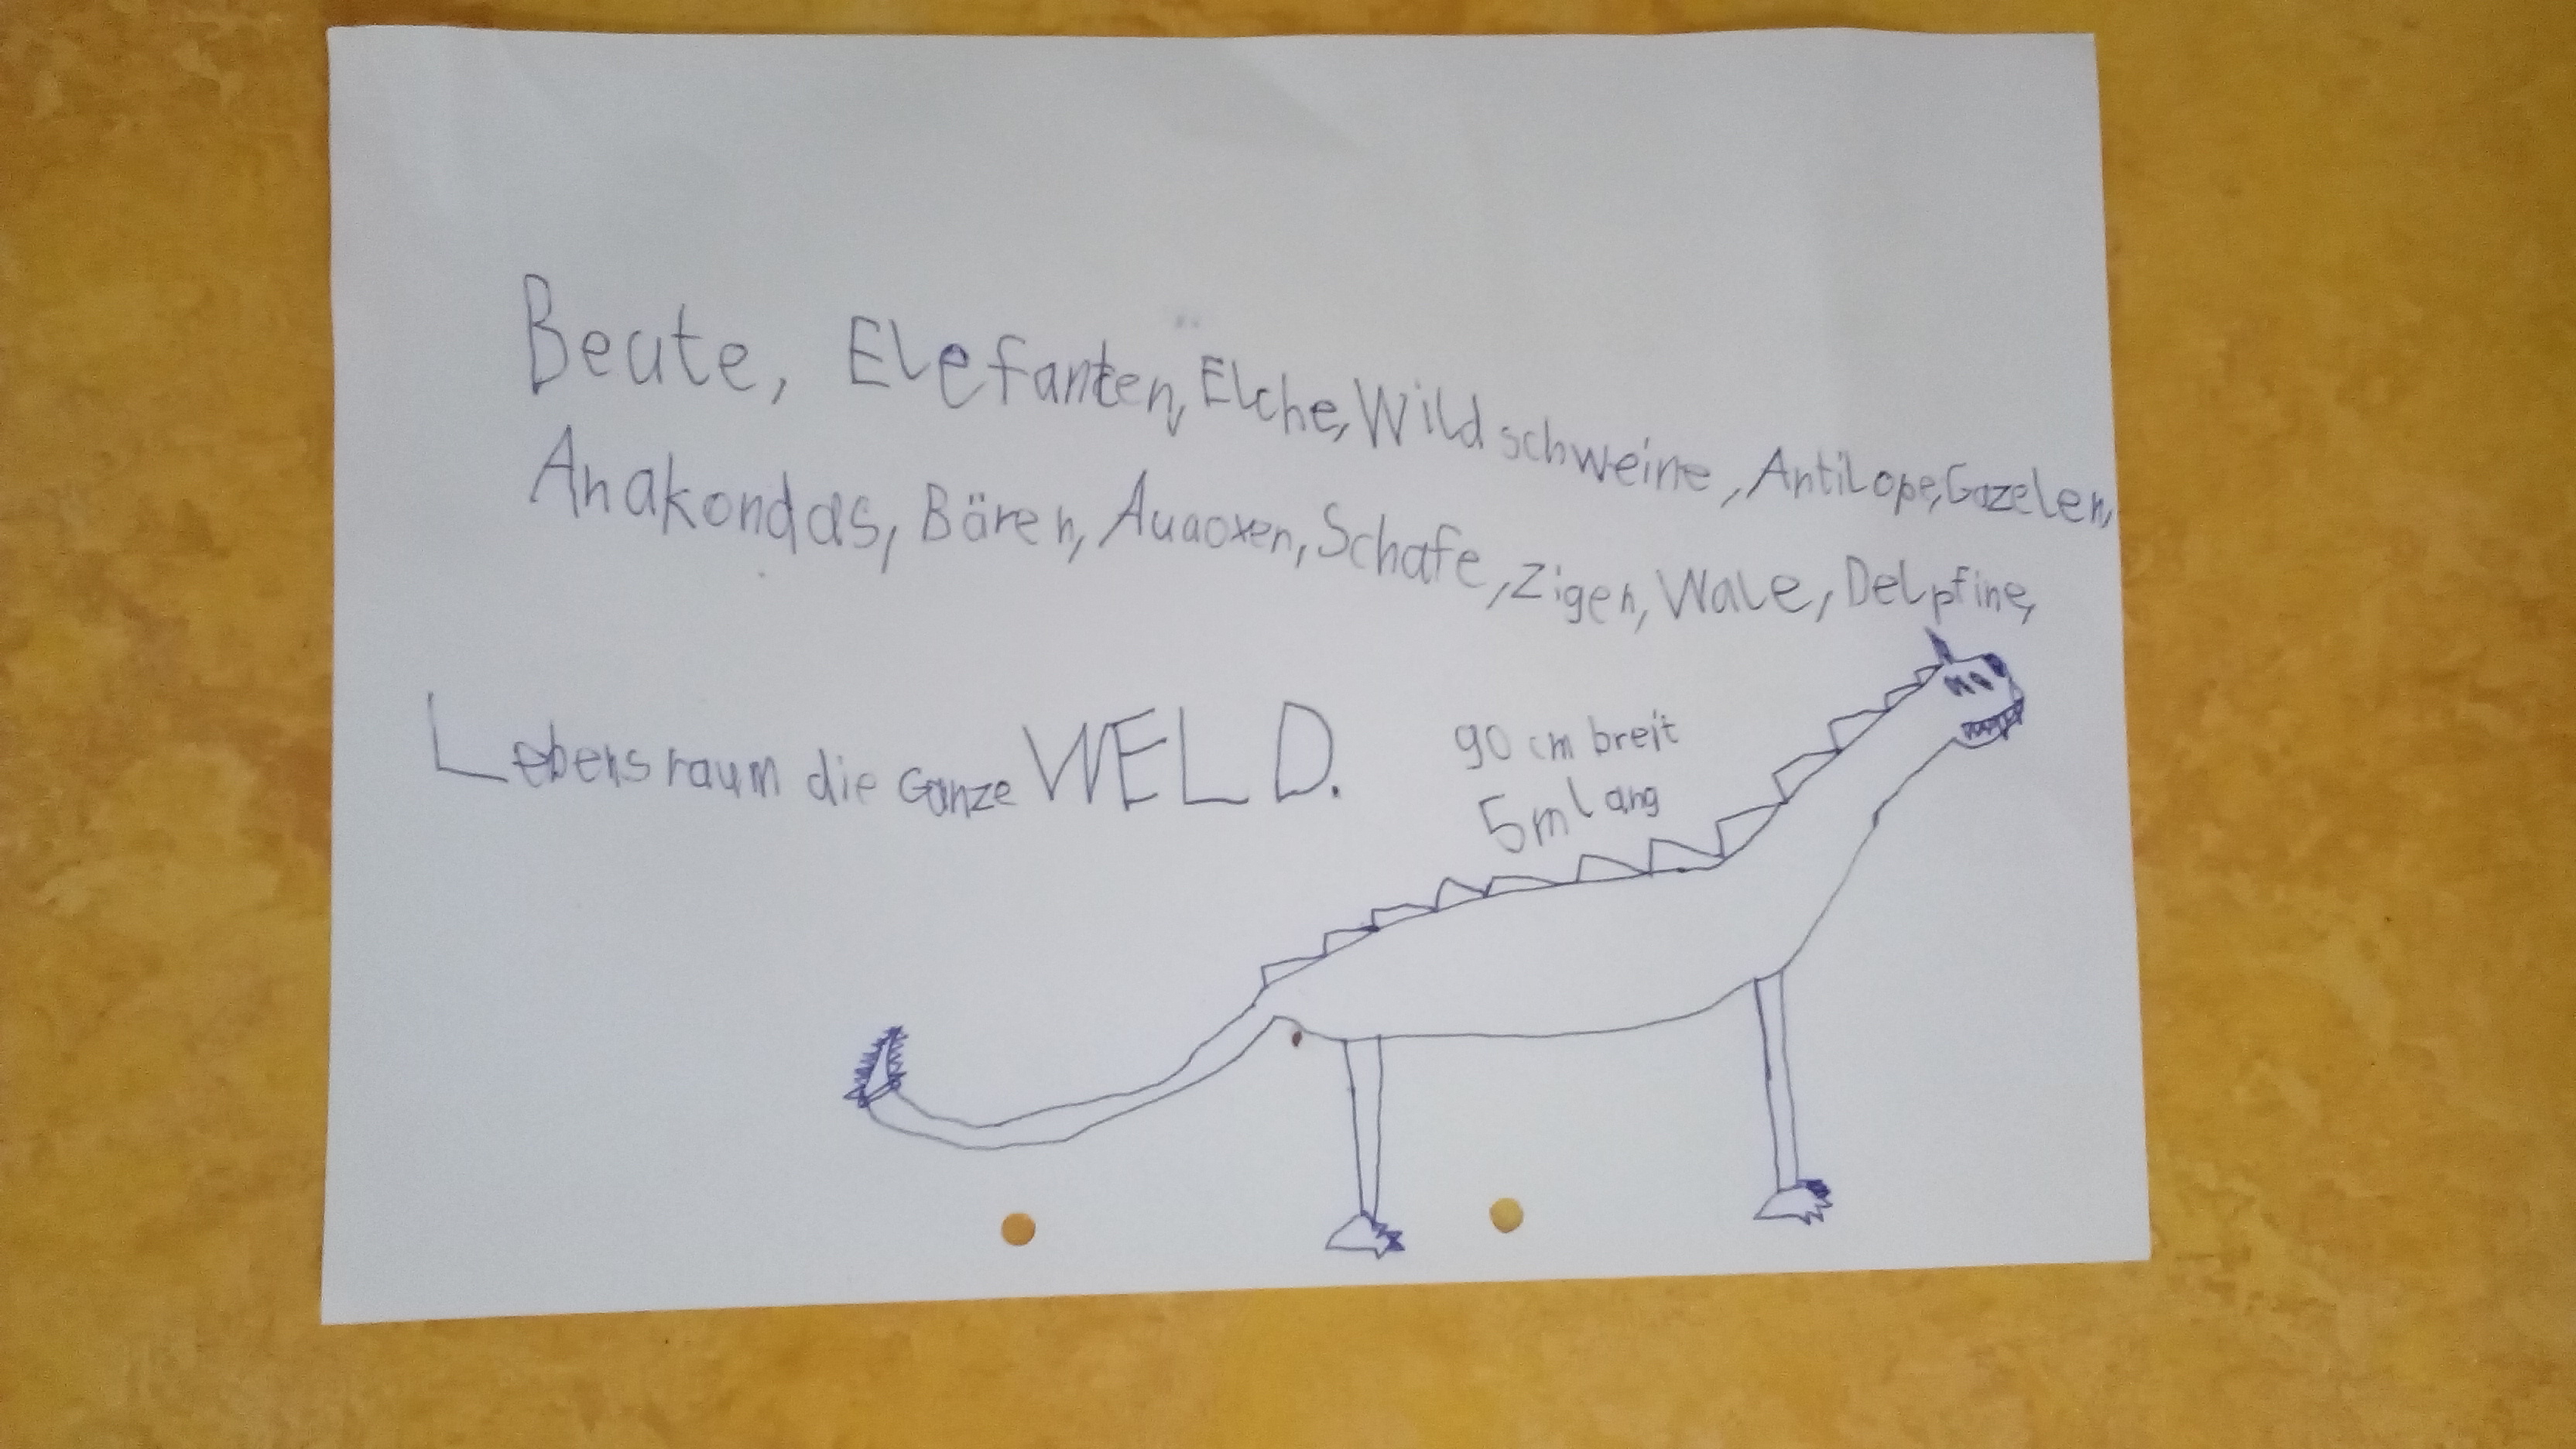 Beute, Elefanten, Elche, Wildschweine, Antilope, Gazelen,
Anakondas, Bären, Auaoxen, Schafe, Zigen, Wale, Delpfine,
Lebensraum die Ganze WELD.
90 cm breit
5m lang